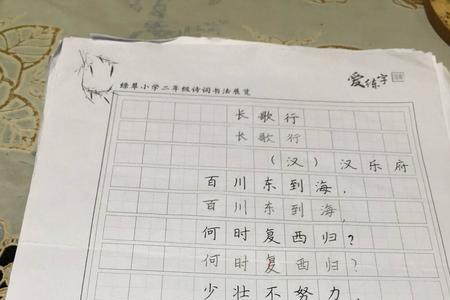 绿翠小学二年级诗词书法展览
爱练字
长歌行
长歌行
（汉）汉乐府
百川东到海，
百川东到海，
何时复西归？
何时复西归？
少壮不努力，